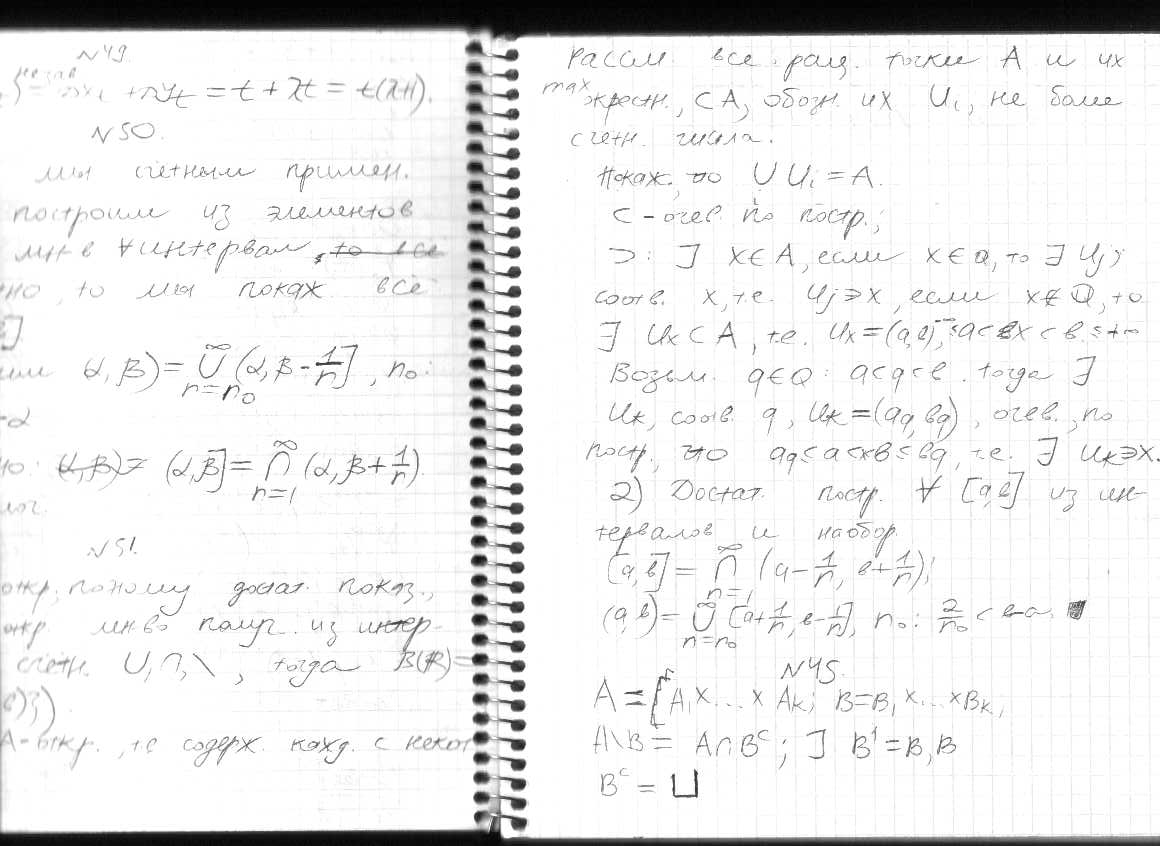 N49.
незав
+ny_t = t + λt = t(λ+1).
N50.
мы счетным примен.
построим из элементов
мн-в ∀ интервал, то все
но, то мы покаж все
α, β) = ∪_{n=n₀}^∞ (α, β - 1/n], n₀:
-α
(α, β) = (α, β] = ∩_{n=1}^∞ (α, β + 1/n).
N51.
откр, поэтому достат. показ.,
откр. мн-во получ. из интер-
счетн. ∪, ∩, \, тогда B(ℝ)=
A-откр., т.е содерж. кажд. с некот
Рассм все рац. точки A и их
max окрестн., ⊂A, обозн их U_i, не более
счетн. числа.
Покаж, что ∪U_i = A.
⊂ - очев по постр.;
⊃: ∃ x∈A, если x∈Q, то ∃ U_j,
соотв. x, т.е. U_j∋x, если x∉Q, то
∃ U_x⊂A, т.е. U_x=(a,b), -∞≤a<x<b≤+∞
Возьм. q∈Q: a<q<b. тогда ∃
U_k, соотв. q, U_k=(a_q, b_q), очев., по
постр, что a_q≤a<x<b≤b_q, т.е. ∃ U_k∋x.
2) Достат. постр. ∀ [a,b] из ин-
тервалов и наобор.
[a,b] = ∩_{n=1}^∞ (a - 1/n, b + 1/n);
(a,b) = ∪_{n=n₀}^∞ [a + 1/n, b - 1/n], n₀: 2/n₀ < b-a.
N45.
A = A₁×...×A_k; B=B₁×...×B_k,
A\B = A∩B^c; ∃ B¹=B₁B
B^c = ⊔